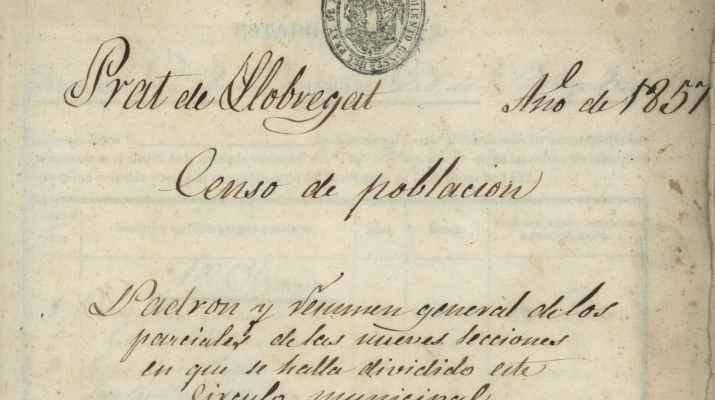 Prat de Llobregat Año de 1857
Censo de poblacion
Padron y resumen general de los
parciales de las nueves secciones
en que se halla dividido este
Circulo municipal